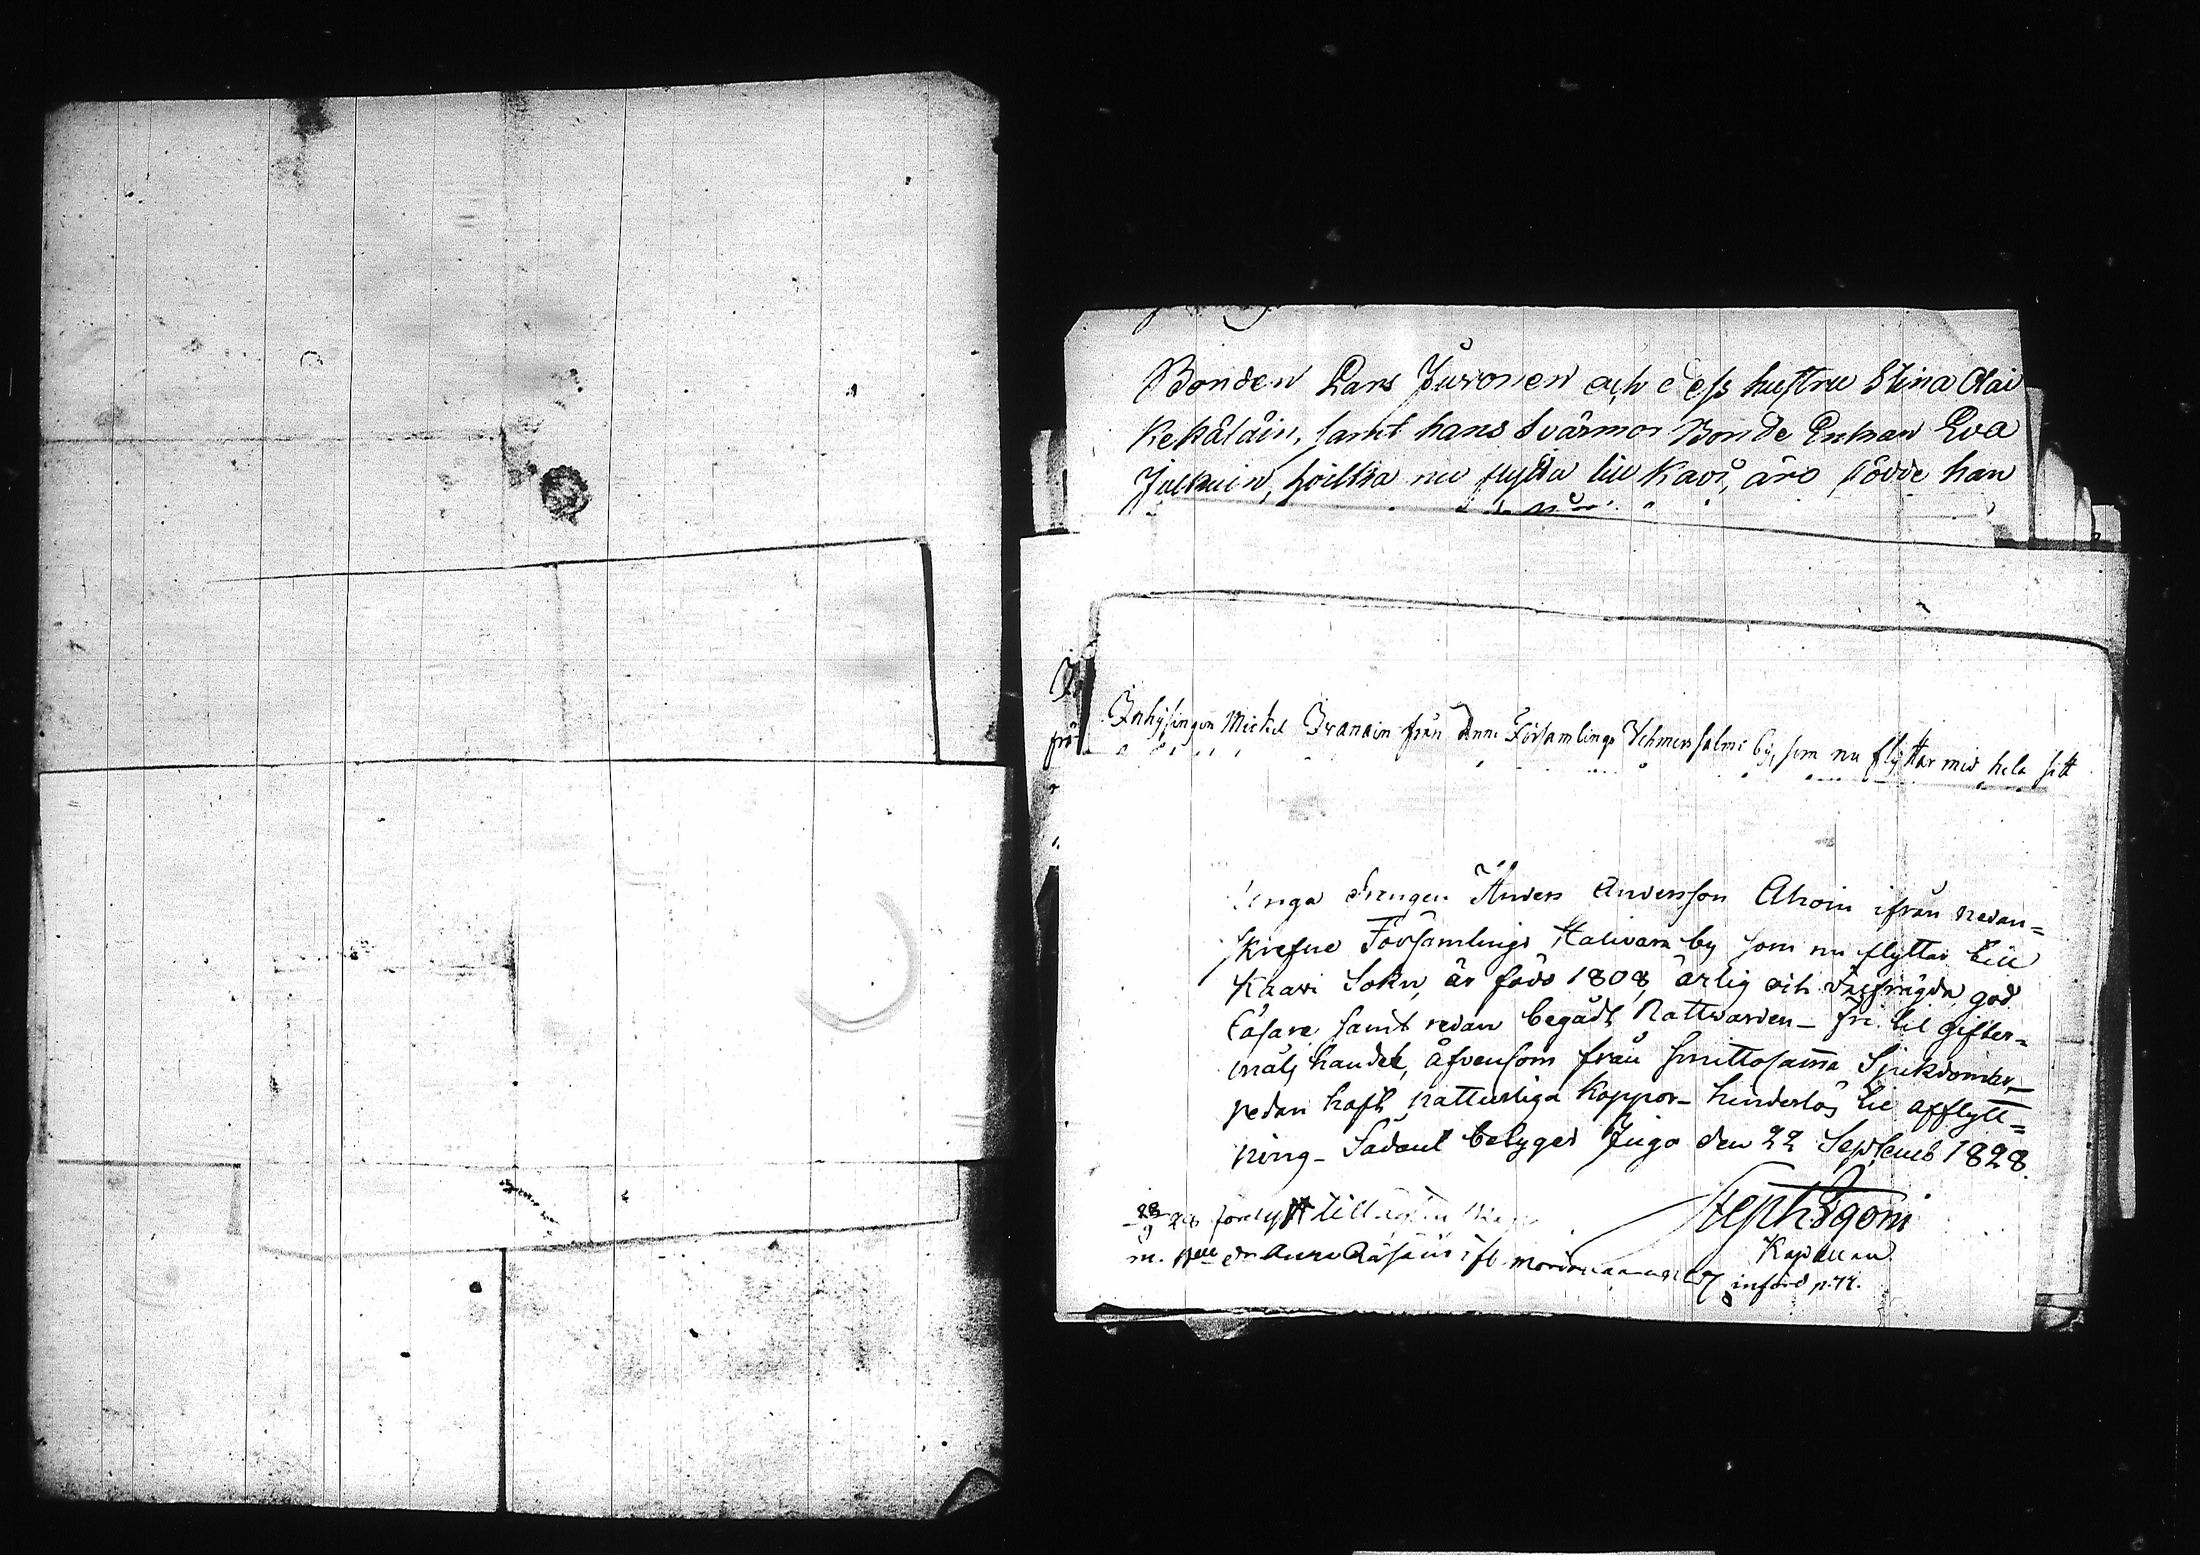 Bonden Lars Juvonen och dess hustru Stina Olai
Kekäläin, samt hans Svärmor Bonde Enkan Eva
Julkuin, hvilka nu flytta till Kavi, äro födde han
Inhysingen Mickel Iranain från denne Församlings Vehmersalmi by, som nu flyttar med hela sitt
frö
Unga drengen Anders Andersson Ahoin ifrån nedan=
skrefne Församlings Halivara by som nu flyttar till
Kaavi Sokn, är född 1808, ärlig och välfrägda, god
Läsare, samt redan begådt Nattvarden_ fri til gifter=
måls handel, äfvensom från smittosamma Sjukdomar_
redan haft naturliga koppor_ hinderlös till afflytt=
ning_ Sådant betygar Juga den 22 Septemb 1828.
Steph Sgoni
Kapellan
28/9 28 förflytt till
m. dr Anna Räsäin ifl. införd p. 77.